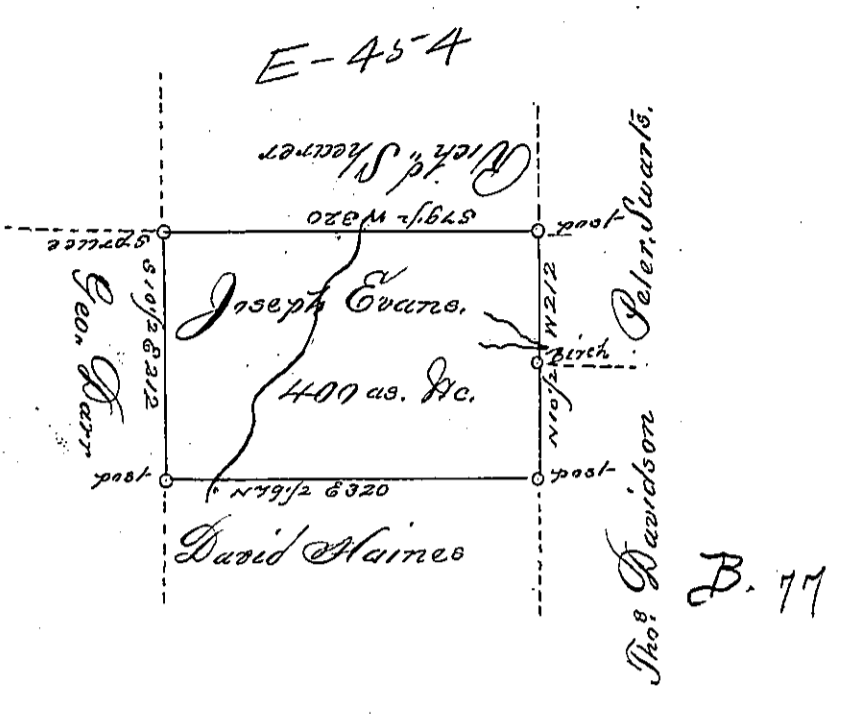 E-454
Rich'd Shearer
S79 1/2 W 320
Spruce
post
Peter Swarts.
Geo. Darr
S10 1/2 E 212
Joseph Evans.
N10 1/2 W 212
Birch
400 as. &c.
post
N79 1/2 E 320
post
David Haines
Thos. Davidson
B. 77